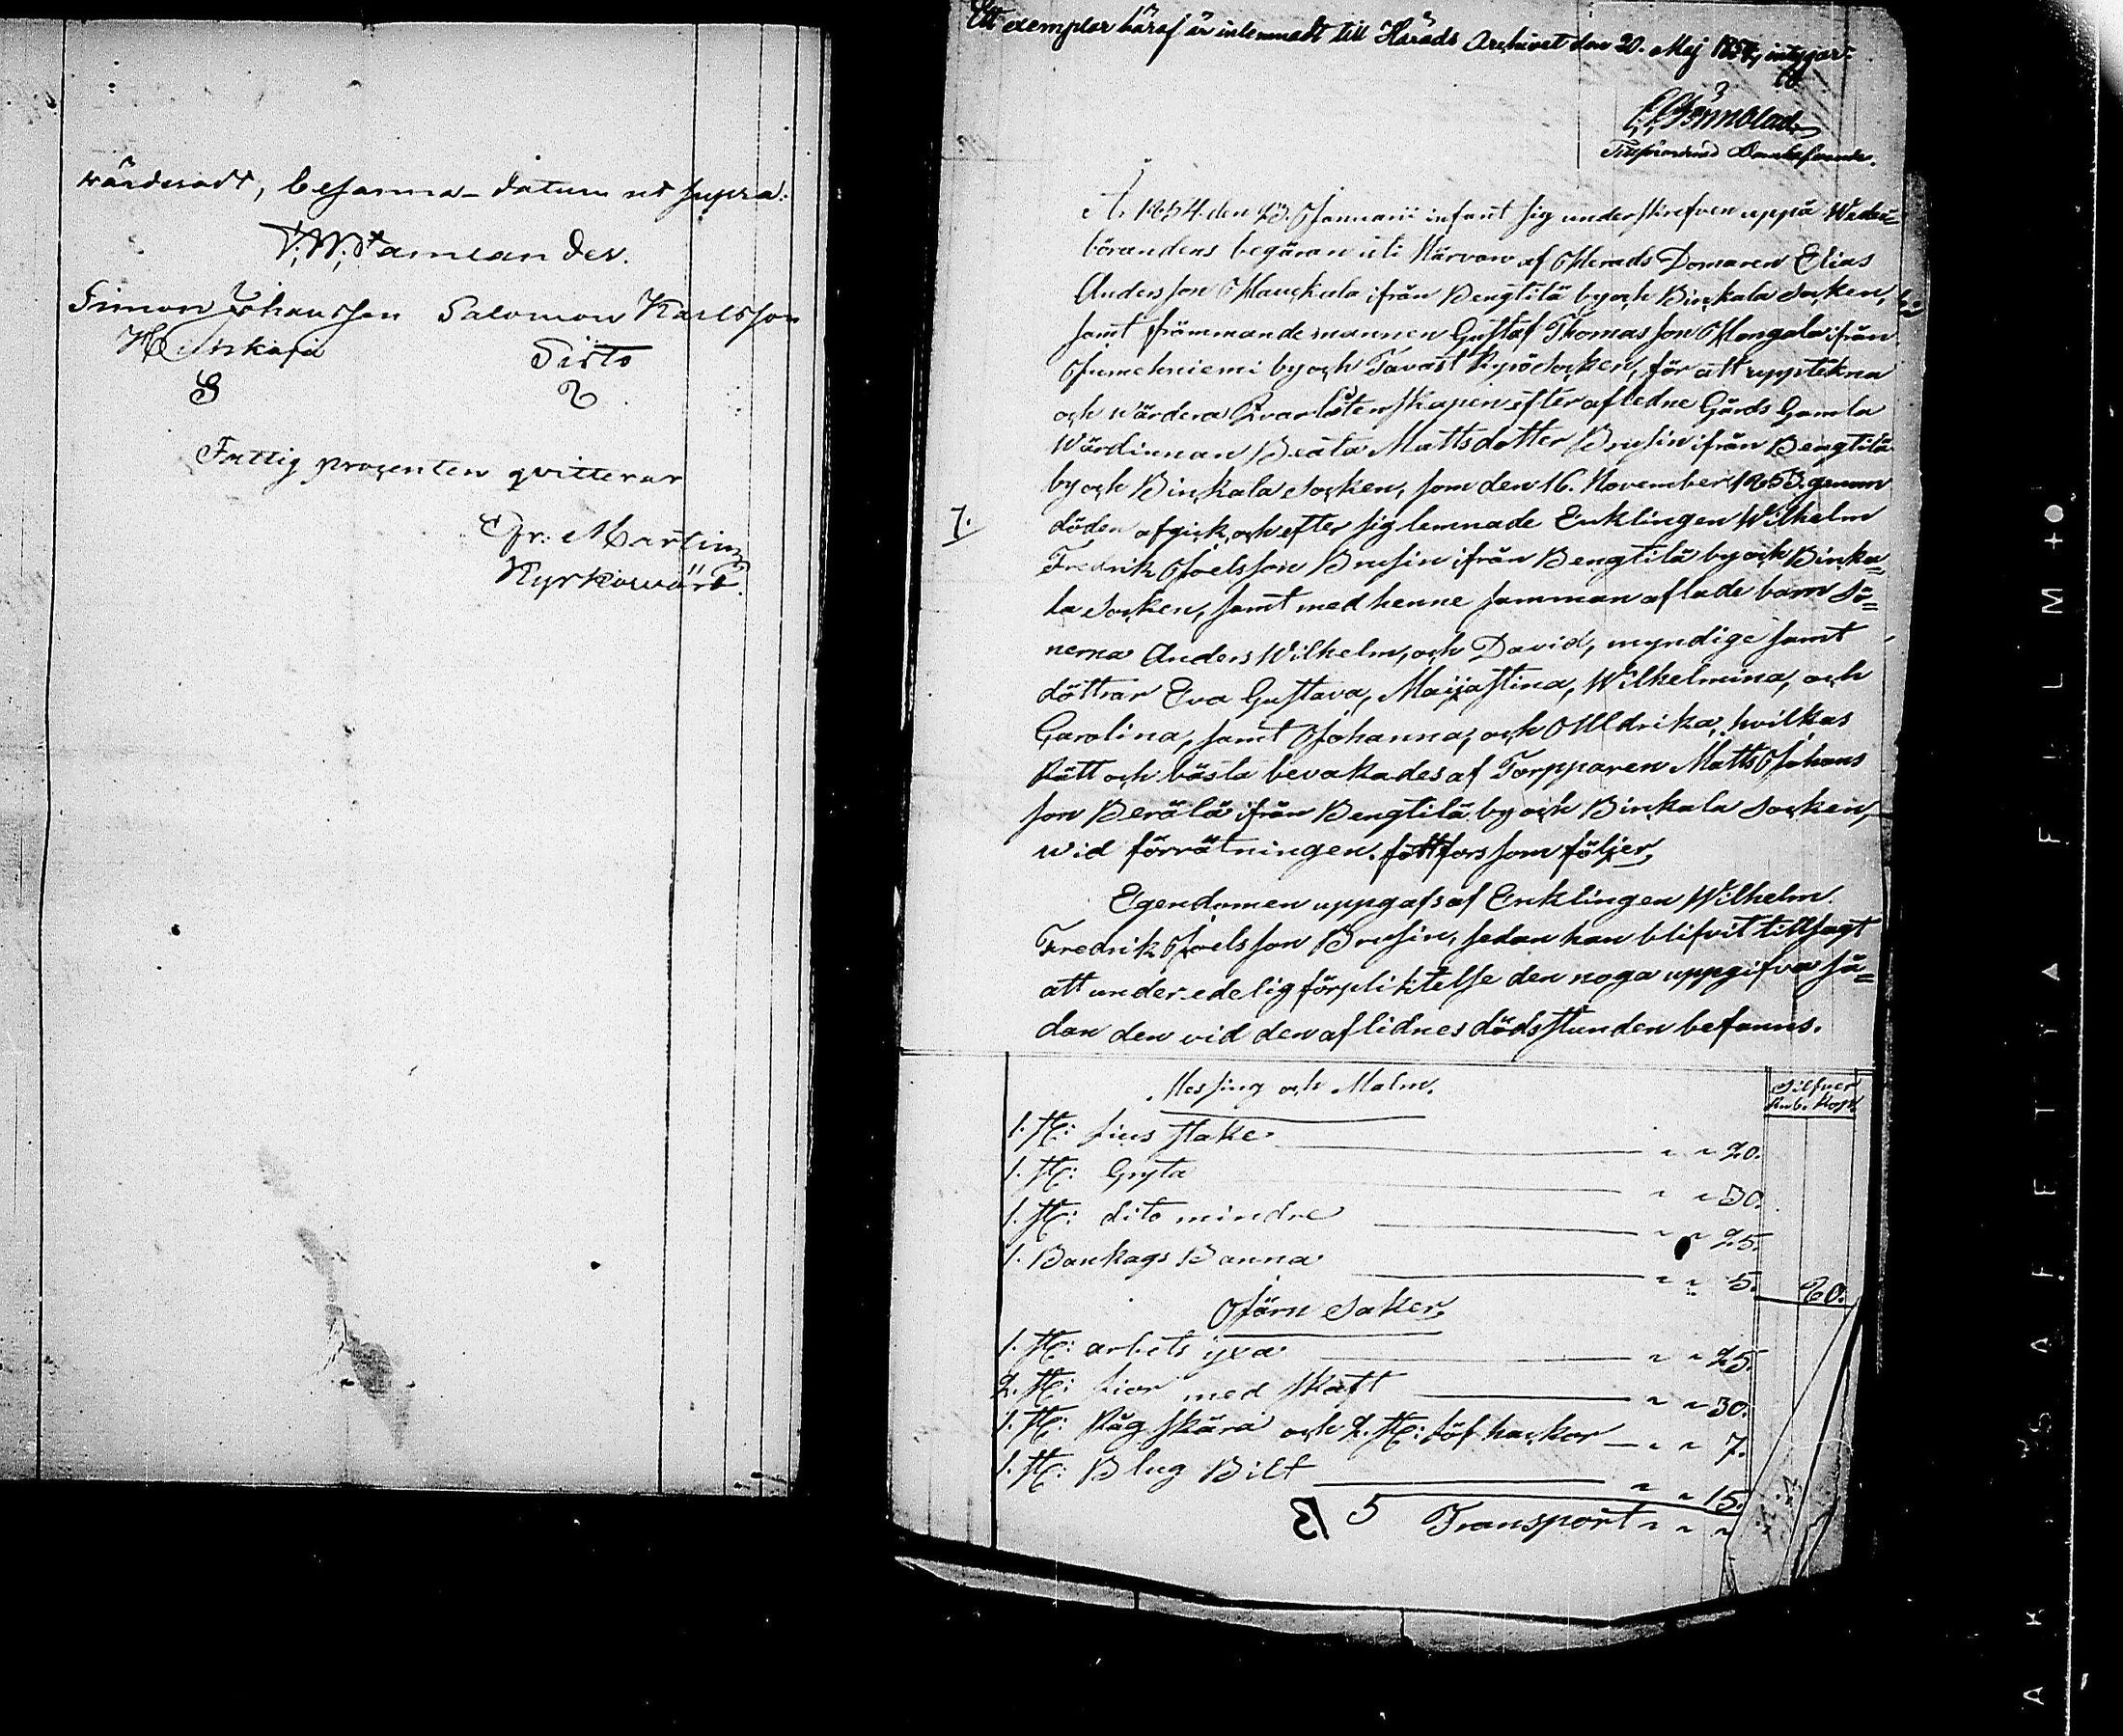 wärderadt, besanna datum ut supra:
F. W. Tamlander.
Simon Johansson Salomon Karlsson
Sisto
Fattig procenten qvitterar
Efr: Martin
Kyrkowärd.
Ett exemplar häraf är inlemnadt till Härads Archivet den 20. Maj 1854, intygar
Tillförordnad Domhafvande.
År 1854. den 23. Januarii infant sig underskrefven uppå Weder-
börandens begäran uti Närvaro af Herads Domaren Elias
Andersson Hauckala ifrån Bengtilä by och Birkala Socken,
samt främmande mannen Gustaf Thomasson Hongala ifrån
Jumehniemi by och Tavast Kyrö Socken, för att upptekna
och wärdera Qvarlåtenskapen efter afledne Gårds Gamla
Wärdinnan Beata Mattsdotter Brusin ifrån Bengtilä
by och Birkala Socken, som den 16. November 1853. genom
7. döden afgick, och efter sig lemnade Enklingen Wilhelm
Fredrik Joelsson Brusin ifrån Bengtilä by och Birka=
la Socken, samt med henne samman aflade barn Sö=
nerna Anders Wilhelm, och David, myndige samt
döttrar Eva Gustava, Maija Stina, Wilhelmina, och
Carolina, samt Johanna, och Uldrika, hvilkas
Rätt och bästa bevakades af Torpparen Matts Johans
son Perälä ifrån Bengtilä by och Birkala Socken,
wid förrätningen. som följer,
Egendomen uppgafs af Enklingen Wilhelm
Fredrik Joelsson Brusin, sedan han blifvit tillsagt
att under edelig förpliktelse den noga uppgifva så=
dan den vid den aflidnes dödsstunden befanns.
Messing och Malm. Silfver
Rub. Kop.
1. St: Lius stake " " 20.
1. St: Gryta " " 30.
1. St: dito mindre " " 25.
1. Bankags Panna " " 5. 80.
Järn Saker.
1. St: arbets yxa " " 25.
2. St: Liar med skaft " " 30.
1. St: Råg skära och 2. St: Löf hackor " " 7.
1. St: Plug Bilt " " 15.
5 Transport " " "
S A F E T Y A F I L M
A K